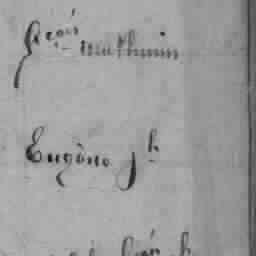 frçois mathurin
Eugène jh